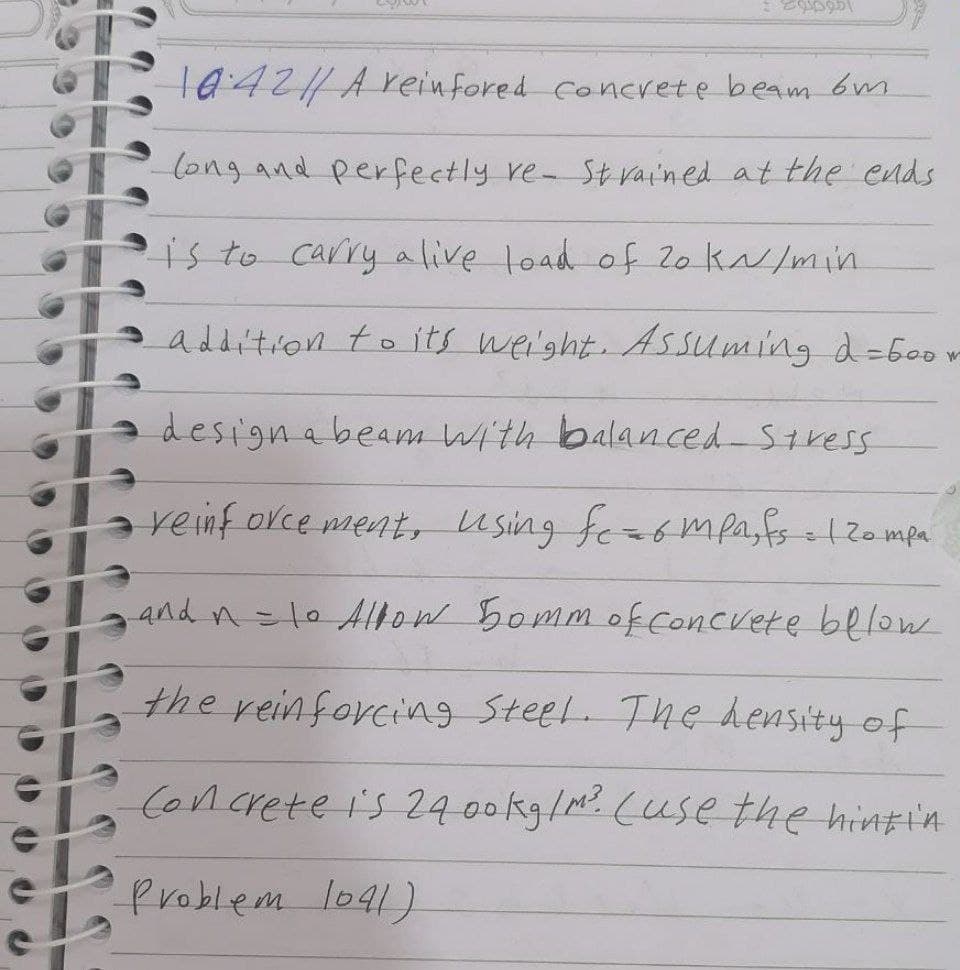 10.42// A reinfored concrete beam 6m
long and perfectly re- strained at the ends
is to carry a live load of 20 kN/m in
addition to its weight. Assuming d=600 m
design a beam with balanced-stress
reinforcement, using fc = 6 mpa, fs = 120 mpa
and n = 10 Allow 50mm of concrete below
the reinforcing steel. The density of
concrete is 2400 kg/m³. (use the hint in
problem 1041)